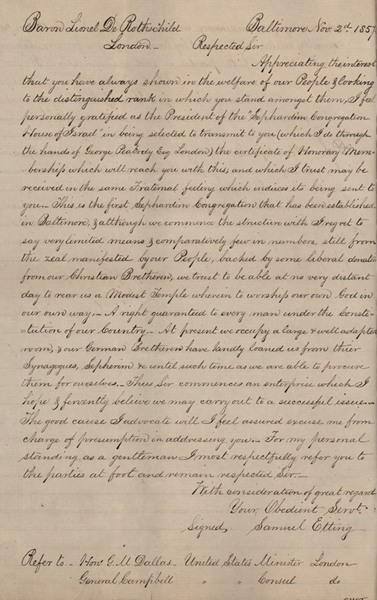 Baron Lionel De Rothschild Baltimore Nov 2d 1857
London — Respected Sir
Appreciating the interest
that you have always shown in the welfare of our People & looking
to the distinguished rank in which you stand amongst them, I feel
personally gratified as the President of the "Sephardim Congregation
House of Israel" in being selected to transmit to you (which I do through
the hands of George Peabody Esq London) the certificate of Honorary Mem-
bership which will reach you with this, and which I trust may be
received in the same Fraternal feeling which indices its being sent to
you — This is the first Sephardim Congregation that has been established
in Baltimore, & although we commence the structure with I regret to
say very limited means & comparatively few in numbers, still from
the zeal manifested by our People, backed by some liberal donatio
from our Christian Bretheren, we trust to be able at no very distant
day to rear us a Modest Temple wherein to worship our own God in
our own way — A right guaranteed to every man under the Consti-
tution of our Country — At present we occupy a large & well adapted
room, & our German Bretheren have kindly loaned us from thier
Synagogues, Sepherim & until such time as we are able to procure
them for ourselves — Thus Sir commences an enterprise which I
hope & fervently believe we may carry out to a successful issue —
The good cause I advocate will I feel assured excuse me from
charge of presumption in addressing you — For my personal
standing as a gentleman I most respectfully refer you to
the parties at foot and remain respected Sir —
With consideration of great regard
Your Obedient Servt
Signed, Samuel Etting
Refer to — Hon G. M. Dallas — United States Minister London
General Campbell " " Consul do
over